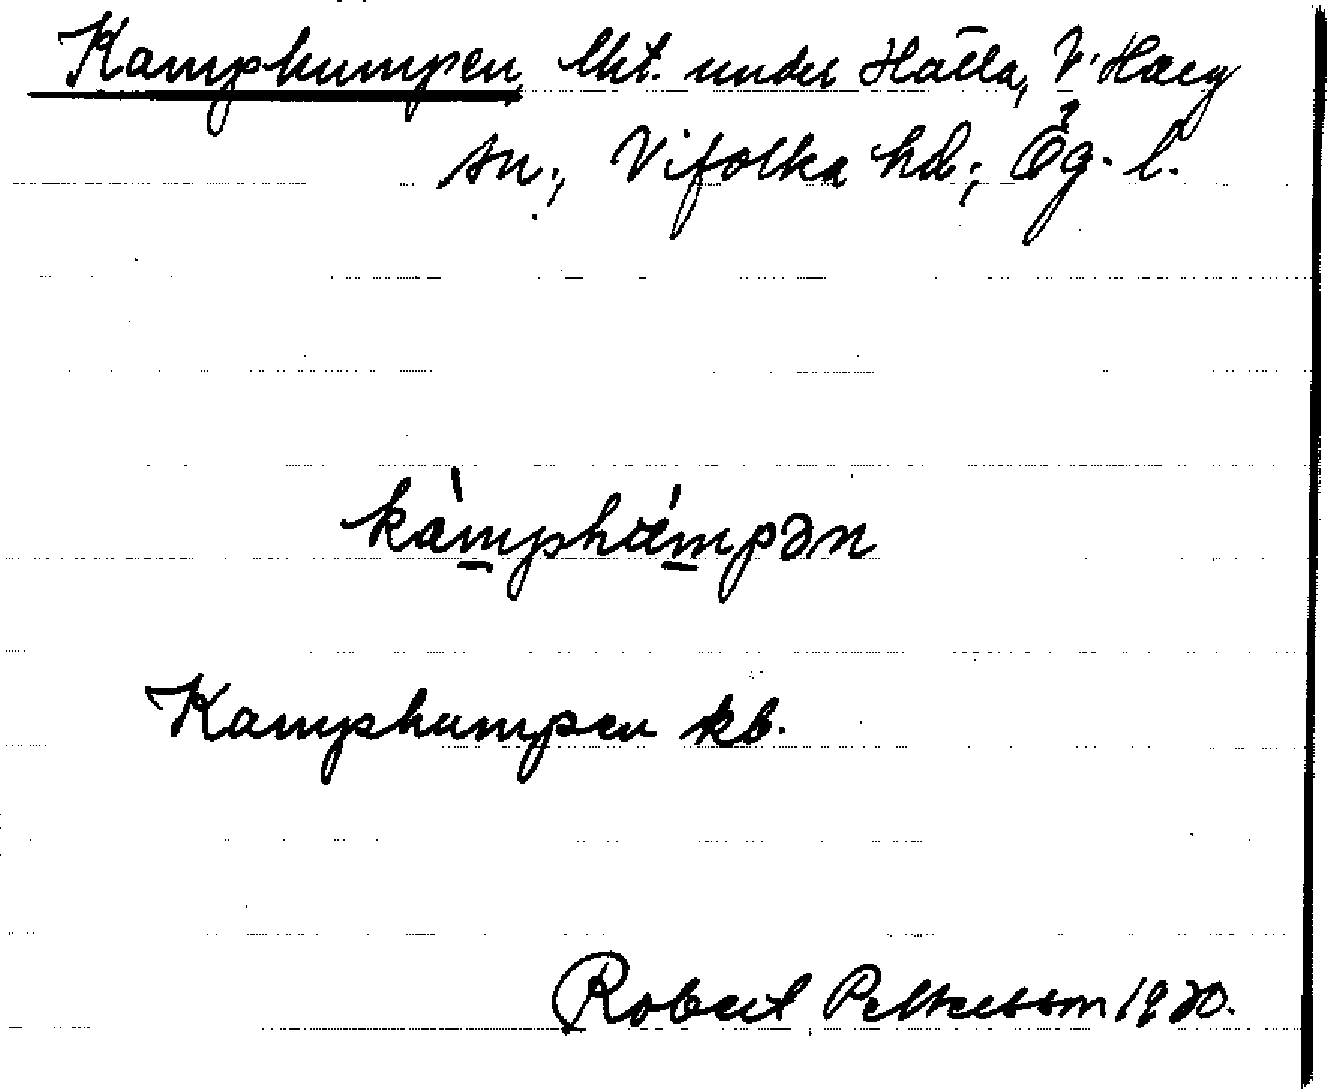 Kamphumpen, lht. under Hälla, V. Harg
sn., Vifolka hd; Ög. l.
kàmphámpən
Kamphumpen kb.
Robert Pettersson 1930.